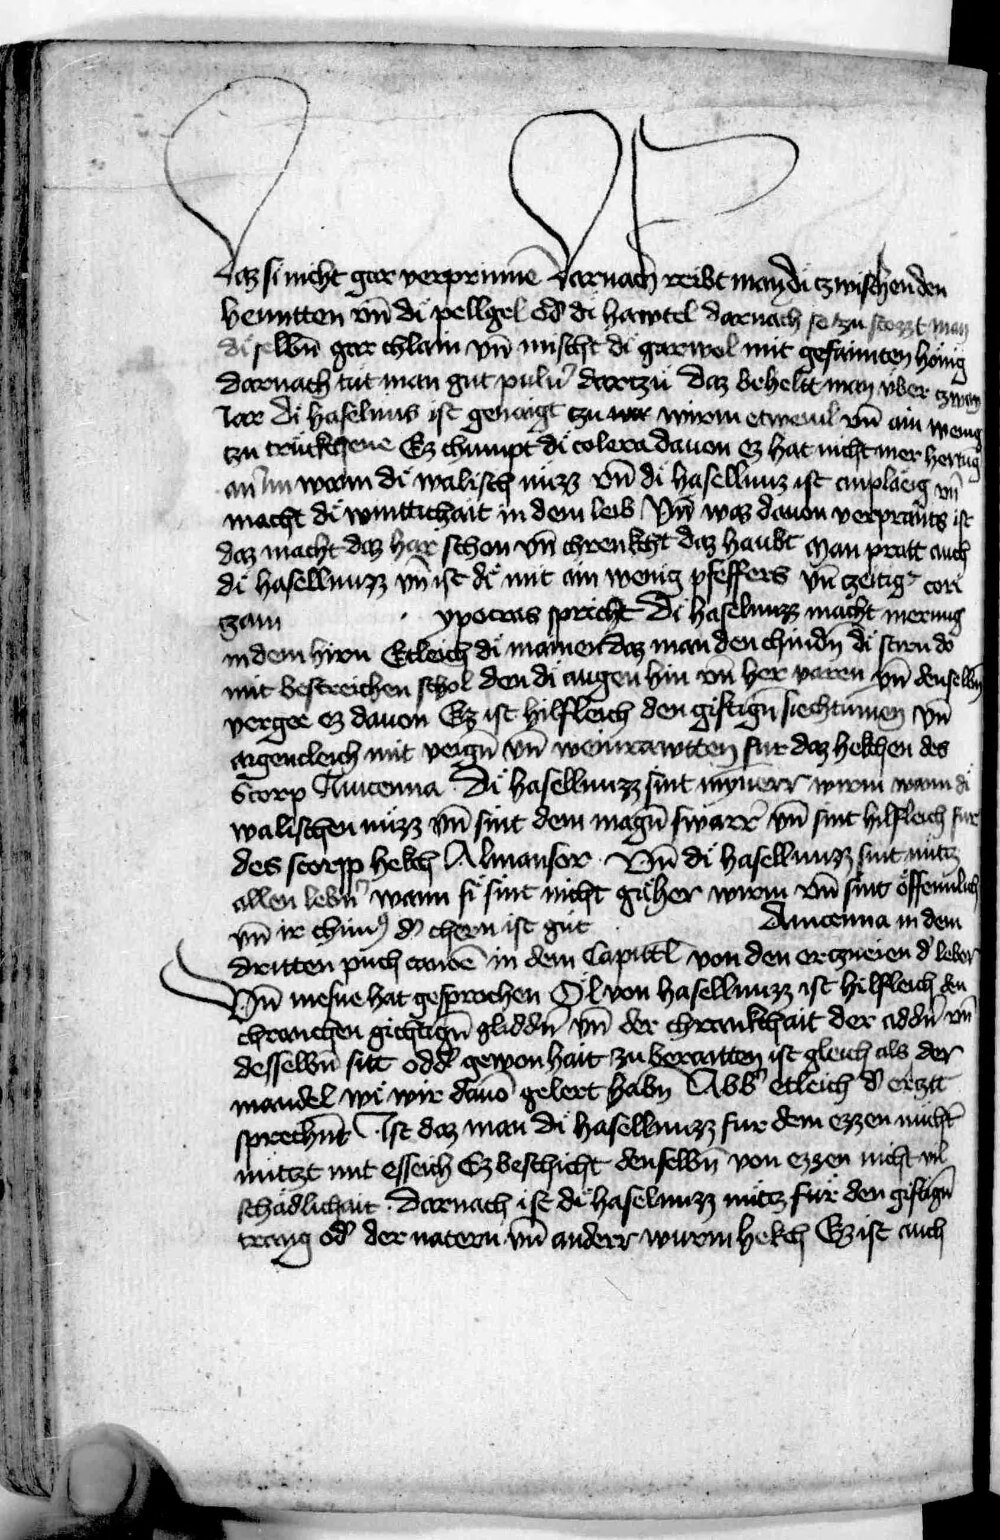 daz si nicht gar verprinnē Darnach reibt man di tzwischen den
henntten vn̄ di pellgel od' di hawtel darnach so zu stozzt man
di selbn̄ gar chlain vn̄ mischt di garwol mit gefaimten hönig
darnach tut man gut pulu' dartzu daz beheltt man über tzway
Jar di haselnus ist genaigt tzu wirm etweuil vn̄ ain wenig
tzu trükchene Ez chumpt di colera dauon ez hat nicht mer hertug
an im wann di walisch nüzz vn̄ di hasellnuz ist enplaeig vn̄
macht di winttichait in dem leib Vn̄ waz dauon verprants ist
daz macht daz har schon vn̄ chrenkcht daz haubt Man pratt auch
di hasellnuzz vn̄ ist di mit ain wenig pfeffers vn̄ tzeitig' cori
zam ypocras spricht Di haselnuzz macht merung
in dem hirn Etleich di mainen daz man den chindn̄ di stirn do
mit bestreichen schol den di augen hin vn̄ her varen vn̄ denselbn̄
verge ez dauon Ez ist hilfleich den giftign̄ siechtumen vn̄
aigencleich mit veign̄ vn̄ weinrawtten fur daz hekchen des
Scorp Auicenna Di hasellnuzz sint mynerr wirm wann di
walischen nüzz vn̄ sint dem magn̄ swarr' vn̄ sint hilfleich fur
des scorpp hekch Almansor Vn̄ di hasellnuzz sint nutz
allen lebn̄' wann si sint nicht gaher wirm vn̄ sint öffennlich
vn̄ ir d' chern ist gut Auicenna in dem
dritten puch canoē in dem Capittl von den ertzneien d' leber
Vn̄ mesue hat gesprochen Öl von hasellnuzz ist hilfleich den
chranchen gichtign̄ gliddn̄ vn̄ der chrankchait der addn̄ vn̄
desselbn̄ sitt odd' gewonhait zu beraitten ist gleich als der
mandel wi wir dauō gelert habn̄ Abb' etleich d' ertztt
sprechn̄t Ist daz man di hasellnuzz fur dem ezzen nucht
nutzt mit esseich Ez beschicht denselbn̄ von ezzen nicht vil
schädlichait Darnach ist di haselnuzz nütz für den giftign̄
trang od' der natern vn̄ anderr wurm hekch Ez ist auch